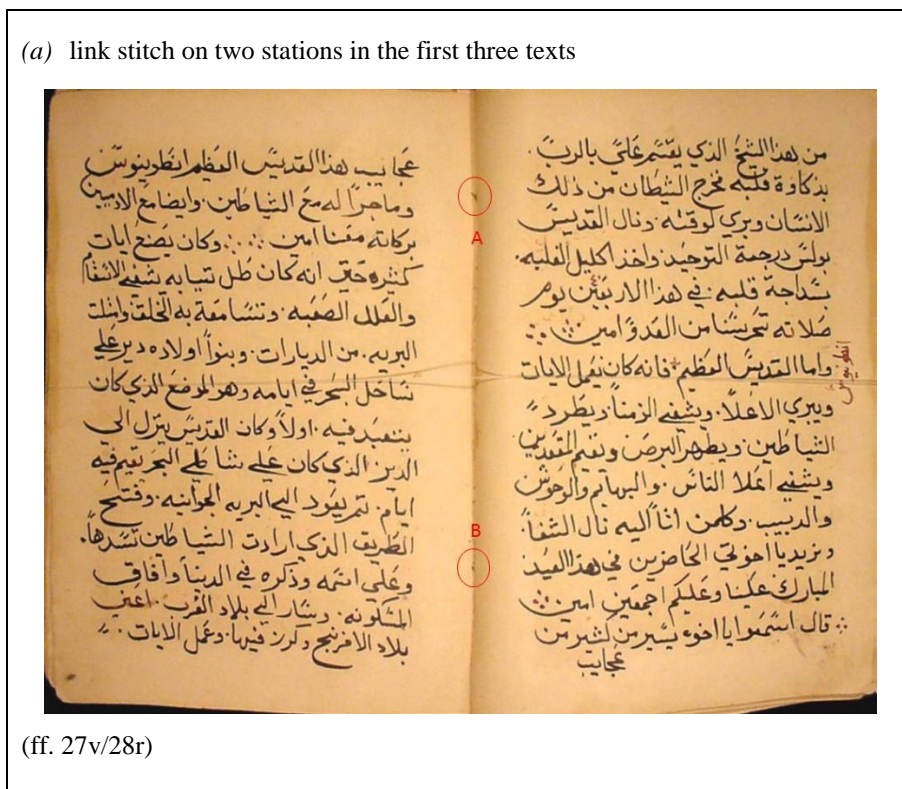 (a) link stitch on two stations in the first three texts
من هذا الشيخ الذي يقسم علي بالرب.
بذكاوة قلبه فخرج الشيطان من ذلك
الانسان وبري لوقته. ونال القديس
بولس درجة التوحيد. واخذ اكليل الغلبه.
بسداجة قلبه. في هذا الاربعين يوم
صلاته تحرسنا من العدو امين
واما القديس العظيم فانه كان يعمل الايات
ويبري الاعلا. ويشفي الزمنا ويطرد
الشياطين. ويطهر البرص ويقيم المقعدين
ويشفي اعلا الناس. والبهايم والوحوش
والدبيب. وكلمن اتا اليه نال الشفا.
يا اخوتي الحاضرين في هذا العيد
المبارك علينا وعليكم اجمعين امين
قال اسمعوا يا اخوه يسير من كثير من
عجايب
انطونيوس
A
B
عجايب هذا القديس العظيم انطونيوس
وماجرا له مع الشياطين. وايضا مع الادميين
بركاته معنا امين. وكان يصنع ايات
كثيره حتي انه كان ظل تيابه يشفي الاسقام
والعلل الصعبه. وتتسامعة به الخلق وامتلت
البريه. من الديارات. وبنوا اولاده دير علي
ساحل البحر في ايامه وهو الموضع الذي كان
يتعبد فيه. اولا وكان القديس ينزل الي
الدير الذي كان علي شاطي البحر يقيم فيه
ايام. تم يعود الي البريه الجوانيه. وفتح
الطريق الذي ارادت الشياطين تسدها.
وعلي اسمه وذكره في الدنيا وافاق
المسكونه. وسار الي بلاد الغرب. اعني
بلاد الافرنج وكرز فيها. وعمل الايات.
(ff. 27v/28r)